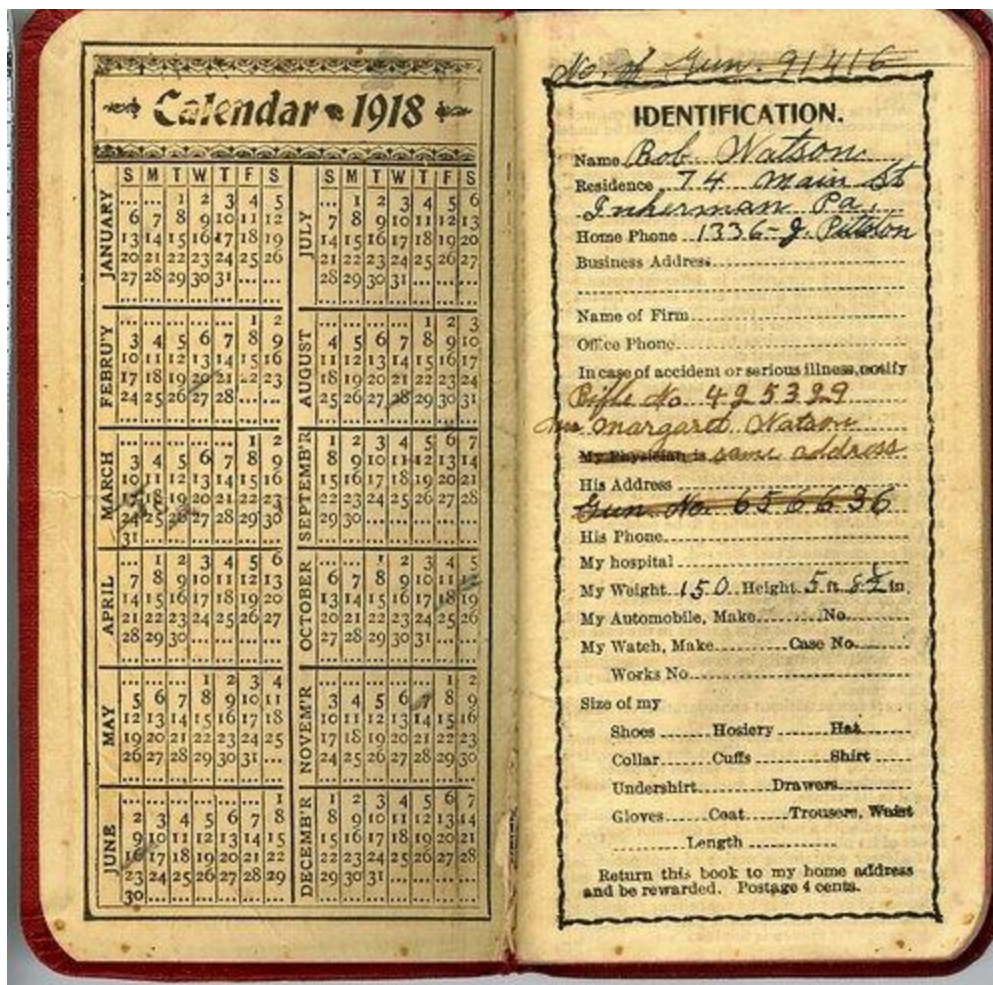 Calendar 1918
JANUARY
S M T W T F S
1 2 3 4 5
6 7 8 9 10 11 12
13 14 15 16 17 18 19
20 21 22 23 24 25 26
27 28 29 30 31
FEBRU'Y
1 2
3 4 5 6 7 8 9
10 11 12 13 14 15 16
17 18 19 20 21 22 23
24 25 26 27 28
MARCH
1 2
3 4 5 6 7 8 9
10 11 12 13 14 15 16
17 18 19 20 21 22 23
24 25 26 27 28 29 30
31
APRIL
1 2 3 4 5 6
7 8 9 10 11 12 13
14 15 16 17 18 19 20
21 22 23 24 25 26 27
28 29 30
MAY
1 2 3 4
5 6 7 8 9 10 11
12 13 14 15 16 17 18
19 20 21 22 23 24 25
26 27 28 29 30 31
JUNE
1
2 3 4 5 6 7 8
9 10 11 12 13 14 15
16 17 18 19 20 21 22
23 24 25 26 27 28 29
30
JULY
S M T W T F S
1 2 3 4 5 6
7 8 9 10 11 12 13
14 15 16 17 18 19 20
21 22 23 24 25 26 27
28 29 30 31
AUGUST
1 2 3
4 5 6 7 8 9 10
11 12 13 14 15 16 17
18 19 20 21 22 23 24
25 26 27 28 29 30 31
SEPTEMB'R
1 2 3 4 5 6 7
8 9 10 11 12 13 14
15 16 17 18 19 20 21
22 23 24 25 26 27 28
29 30
OCTOBER
1 2 3 4 5
6 7 8 9 10 11 12
13 14 15 16 17 18 19
20 21 22 23 24 25 26
27 28 29 30 31
NOVEM'R
1 2
3 4 5 6 7 8 9
10 11 12 13 14 15 16
17 18 19 20 21 22 23
24 25 26 27 28 29 30
DECEMB'R
1 2 3 4 5 6 7
8 9 10 11 12 13 14
15 16 17 18 19 20 21
22 23 24 25 26 27 28
29 30 31
No. of Gun. 91416
IDENTIFICATION.
Name Bob Watson
Residence 74 Main St
Inkerman Pa.
Home Phone 1336-J. Pittston
Business Address
Name of Firm
Office Phone
In case of accident or serious illness, notify
Rifle No. 425329
Mrs Margaret Watson
My Physician is same address
His Address
Gun. No. 656636
His Phone
My hospital
My Weight 150 Height 5 ft 8½ in.
My Automobile, Make No.
My Watch, Make Case No.
Works No.
Size of my
Shoes Hosiery Hat
Collar Cuffs Shirt
Undershirt Drawers
Gloves Coat Trousers, Waist
Length
Return this book to my home address
and be rewarded. Postage 4 cents.